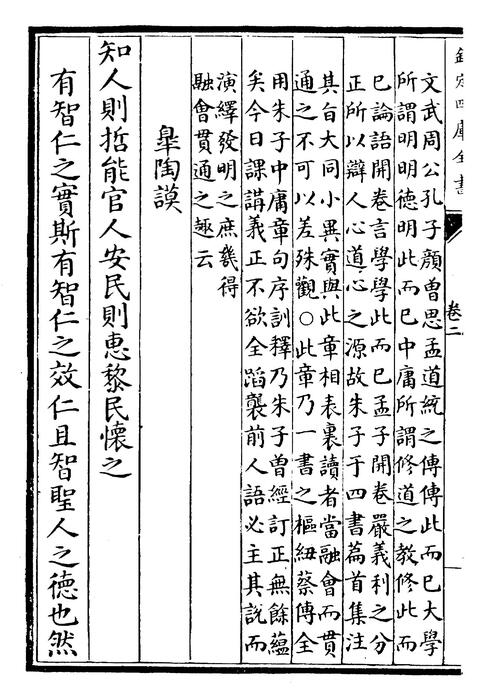 欽定四庫全書
卷二
文武周公孔子顏曾思孟道統之傳傳此而已大學
所謂明明德明此而已中庸所謂修道之教修此而
已論語開卷言學學此而已孟子開卷嚴義利之分
正所以辯人心道心之源故朱子于四書篇首集注
其旨大同小異實與此章相表裏讀者當融會而貫
通之不可以差殊觀○此章乃一書之樞紐蔡傳全
用朱子中庸章句序訓釋乃朱子曾經訂正無餘蘊
矣今日課講義正不欲全蹈襲前人語必主其説而
演繹發明之庶幾得
融會貫通之趣云
皐陶謨
知人則哲能官人安民則惠黎民懷之
有智仁之實斯有智仁之效仁且智聖人之德也然